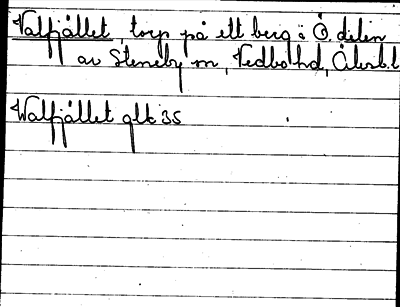 Valfjället, torp på ett berg i Ö. delen
av Steneby sn, Vedbo hd, Älvsb. l
Walfjället glk 35